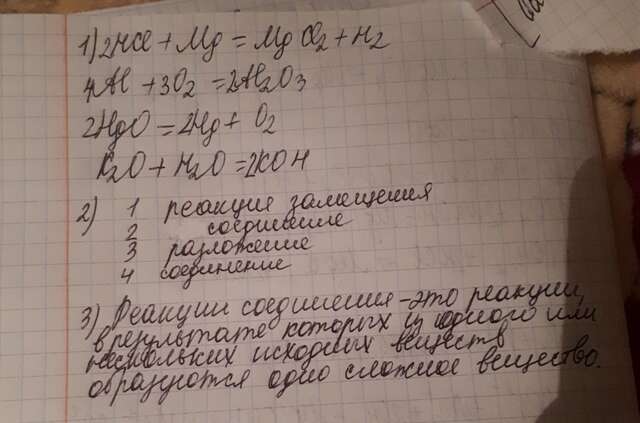 1) 2HCl + Mg = MgCl2 + H2
4Al + 3O2 = 2Al2O3
2HgO = 2Hg + O2
K2O + H2O = 2KOH
2) 1 реакция замещения
2 соединение
3 разложение
4 соединение
3) Реакции соединения - это реакции,
в результате которых из одного или
нескольких исходных веществ
образуются одно сложное вещество.